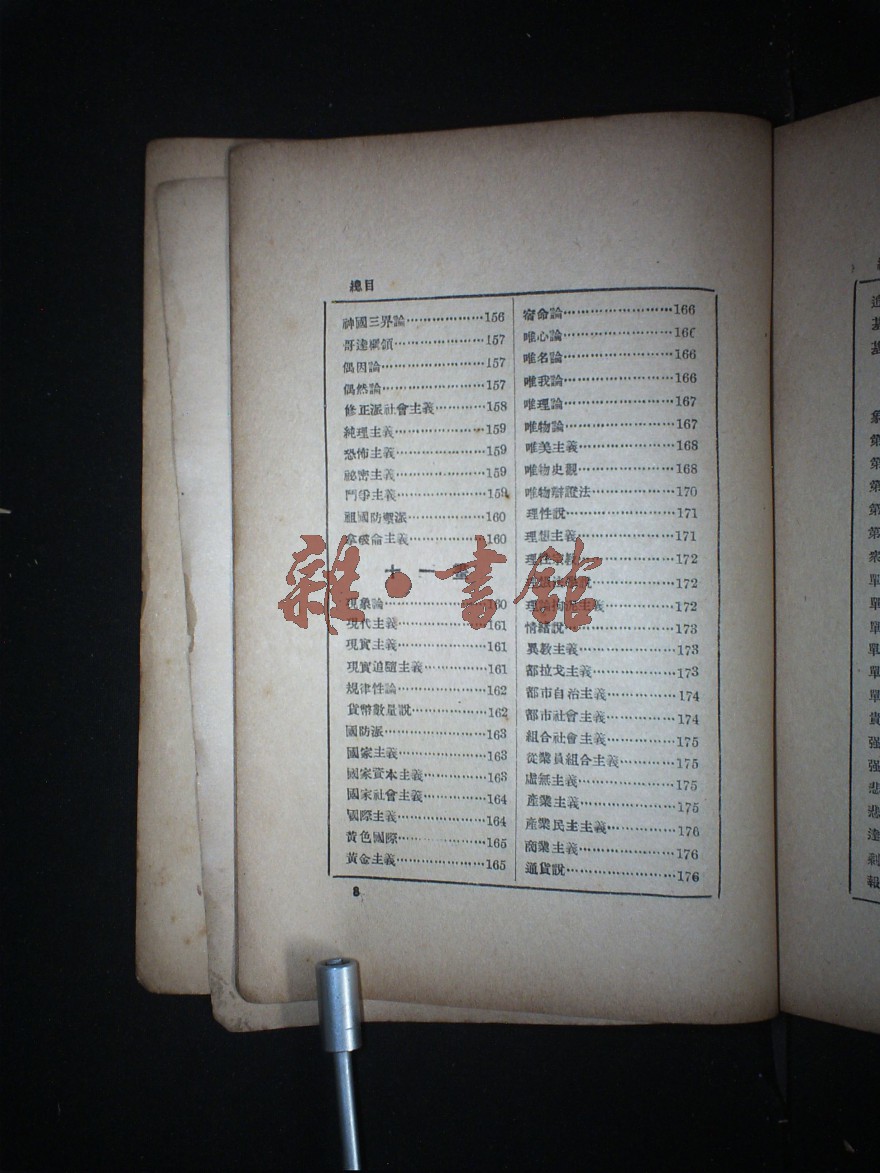 總目
神國三界論………………156
哥達綱領………………157
偶因論………………157
偶然論………………157
修正派社會主義…………158
純理主義………………159
恐怖主義………………159
祕密主義………………159
鬥爭主義………………159
祖國防禦派……………160
拿破侖主義……………160
十一畫
現象論………………160
現代主義………………161
現實主義………………161
現實追隨主義…………161
規律性論………………162
貨幣數量說……………162
國防派………………163
國家主義………………163
國家資本主義…………163
國家社會主義…………164
國際主義………………164
黃色國際………………165
黃金主義………………165
宿命論………………166
唯心論………………166
唯名論………………166
唯我論………………166
唯理論………………167
唯物論………………167
唯美主義………………168
唯物史觀………………168
唯物辯證法……………170
理性說………………171
理想主義………………171
理性宗教………………172
………………172
主義…………172
情緒說………………173
異教主義………………173
都拉戈主義……………173
都市自治主義…………174
都市社會主義…………174
組合社會主義…………175
從業員組合主義………175
虛無主義………………175
產業主義………………175
產業民主主義…………176
商業主義………………176
通貨說………………176
8
雜·書館